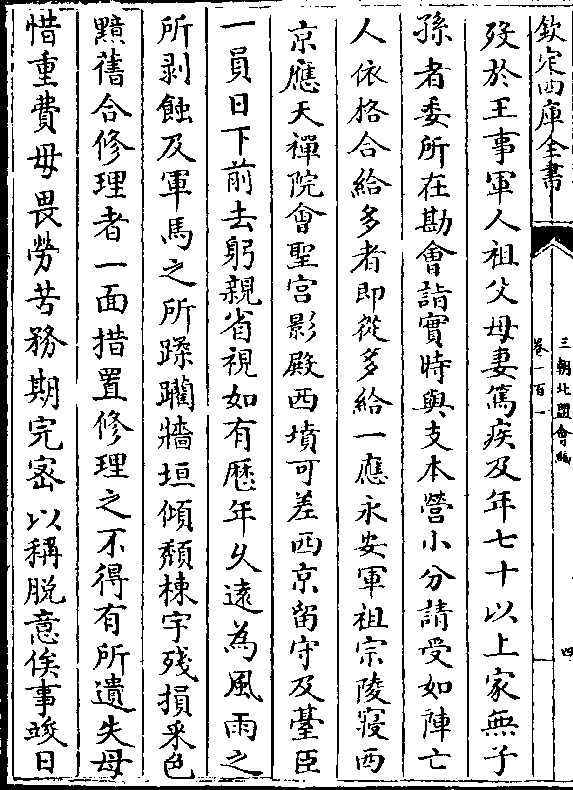 欽定四庫全書
三朝北盟會編
卷一百一
四
歿於王事軍人祖父母妻篤疾及年七十以上家無子
孫者委所在勘會詣實時與支本營小分請受如陣亡
人依格合給多者即從多給一應永安軍祖宗陵寢西
京應天禪院會聖宮影殿西墳可差西京留守及臺臣
一員日下前去躬親省視如有歷年久遠為風雨之
所剥蝕及軍馬之所蹂躪牆垣傾頽棟宇殘損采色
黯舊合修理者一面措置修理之不得有所遺失毋
惜重費毋畏勞苦務期完密以稱脱意俟事竣日